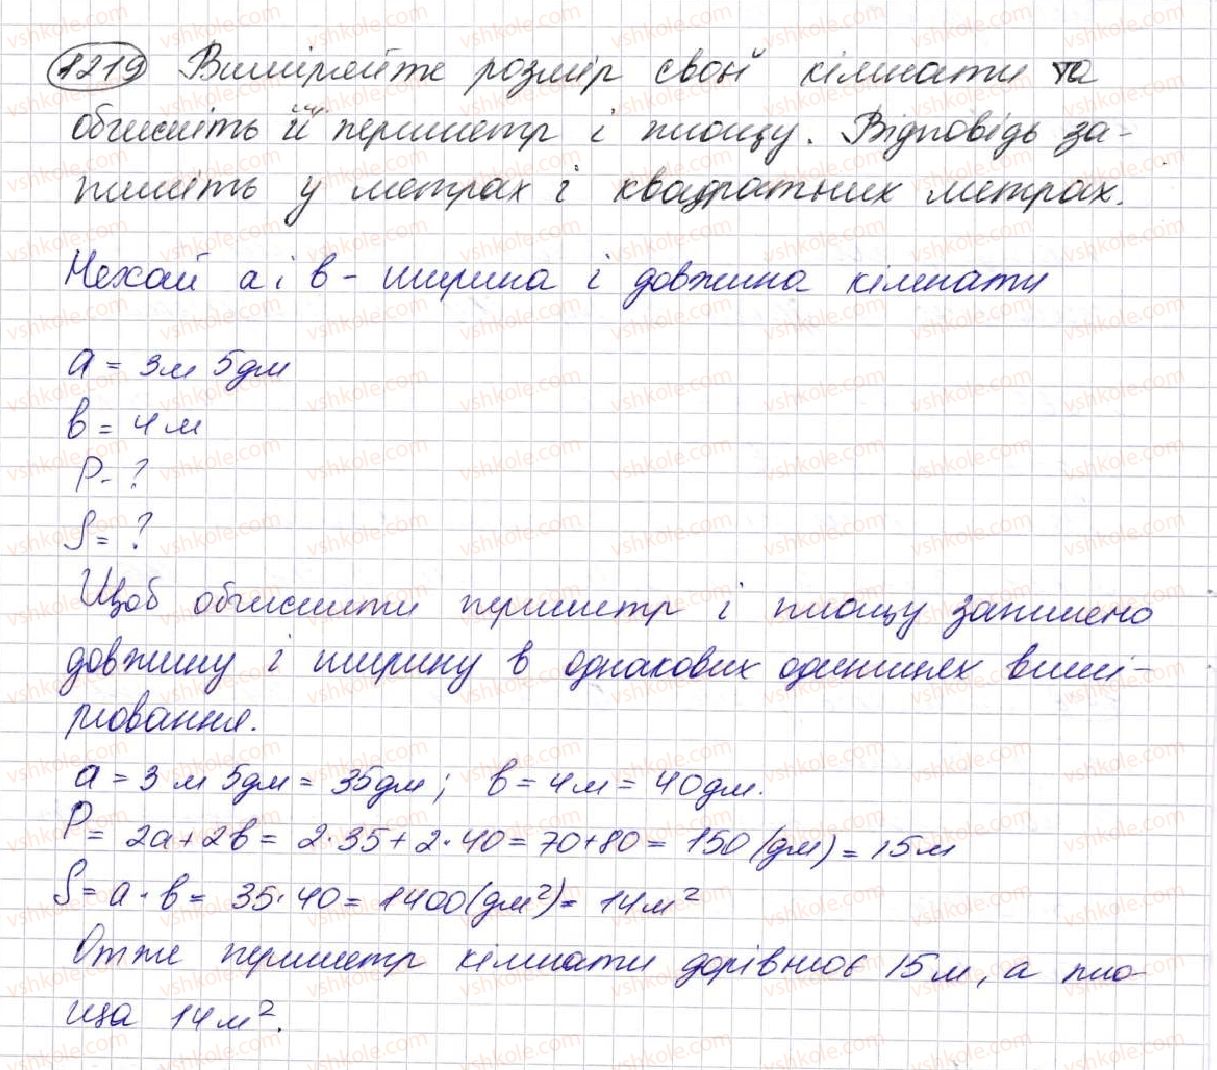 1219 Виміряйте розмір своєї кімнати та
обчисліть її периметр і площу. Відповідь за-
пишіть у метрах і квадратних метрах.
Нехай a і b - ширина і довжина кімнати
a = 3м 5дм
b = 4м
P - ?
S = ?
Щоб обчислити периметр і площу запишемо
довжину і ширину в однакових одиницях вимі-
рювання.
a = 3 м 5дм = 35дм; b = 4м = 40дм.
P = 2a + 2b = 2·35 + 2·40 = 70+80 = 150 (дм) = 15м
S = a · b = 35·40 = 1400(дм²) = 14м²
Отже периметр кімнати дорівнює 15м, а пло-
ща 14м².